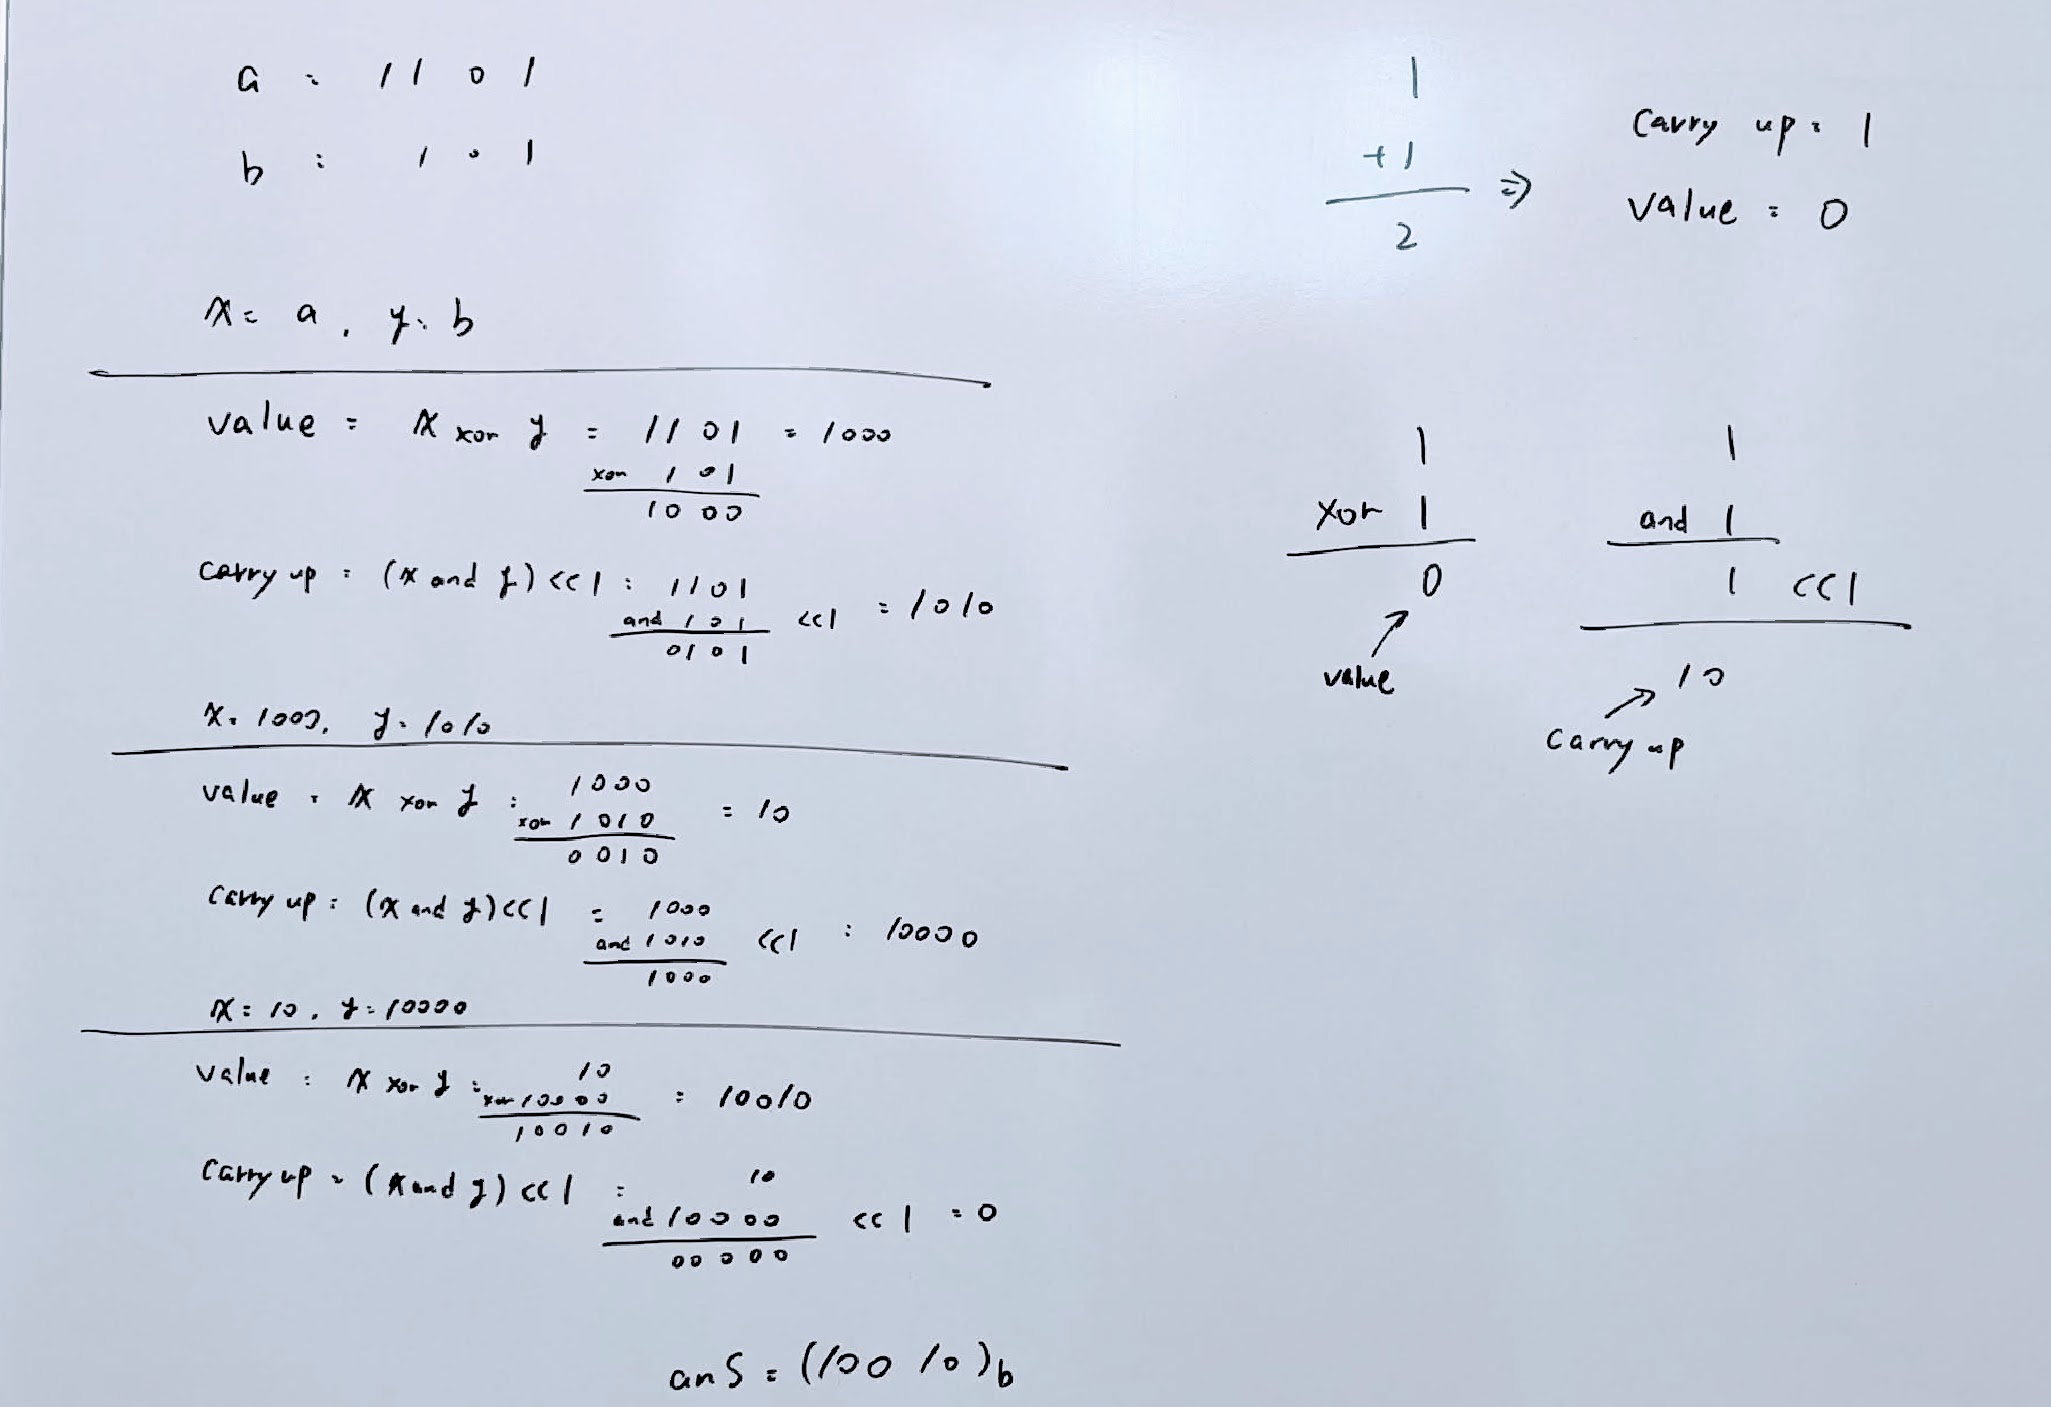 a : 1101
b : 101
x = a, y = b
value = x xor y = 1101 = 1000
xor 101
1000
carry up = (x and y) << 1 = 1101
and 101 << 1 = 1010
0101
x = 1000, y = 1010
value = x xor y = 1000
xor 1010 = 10
0010
carry up = (x and y) << 1 = 1000
and 1010 << 1 = 10000
1000
x = 10, y = 10000
value = x xor y = 10
xor 10000 = 10010
10010
carry up = (x and y) << 1 = 10
and 10000 << 1 = 0
00000
ans = (10010)b
1
+1
2
⇒
carry up = 1
value = 0
1
xor 1
0
value
1
and 1
1 << 1
10
carry up